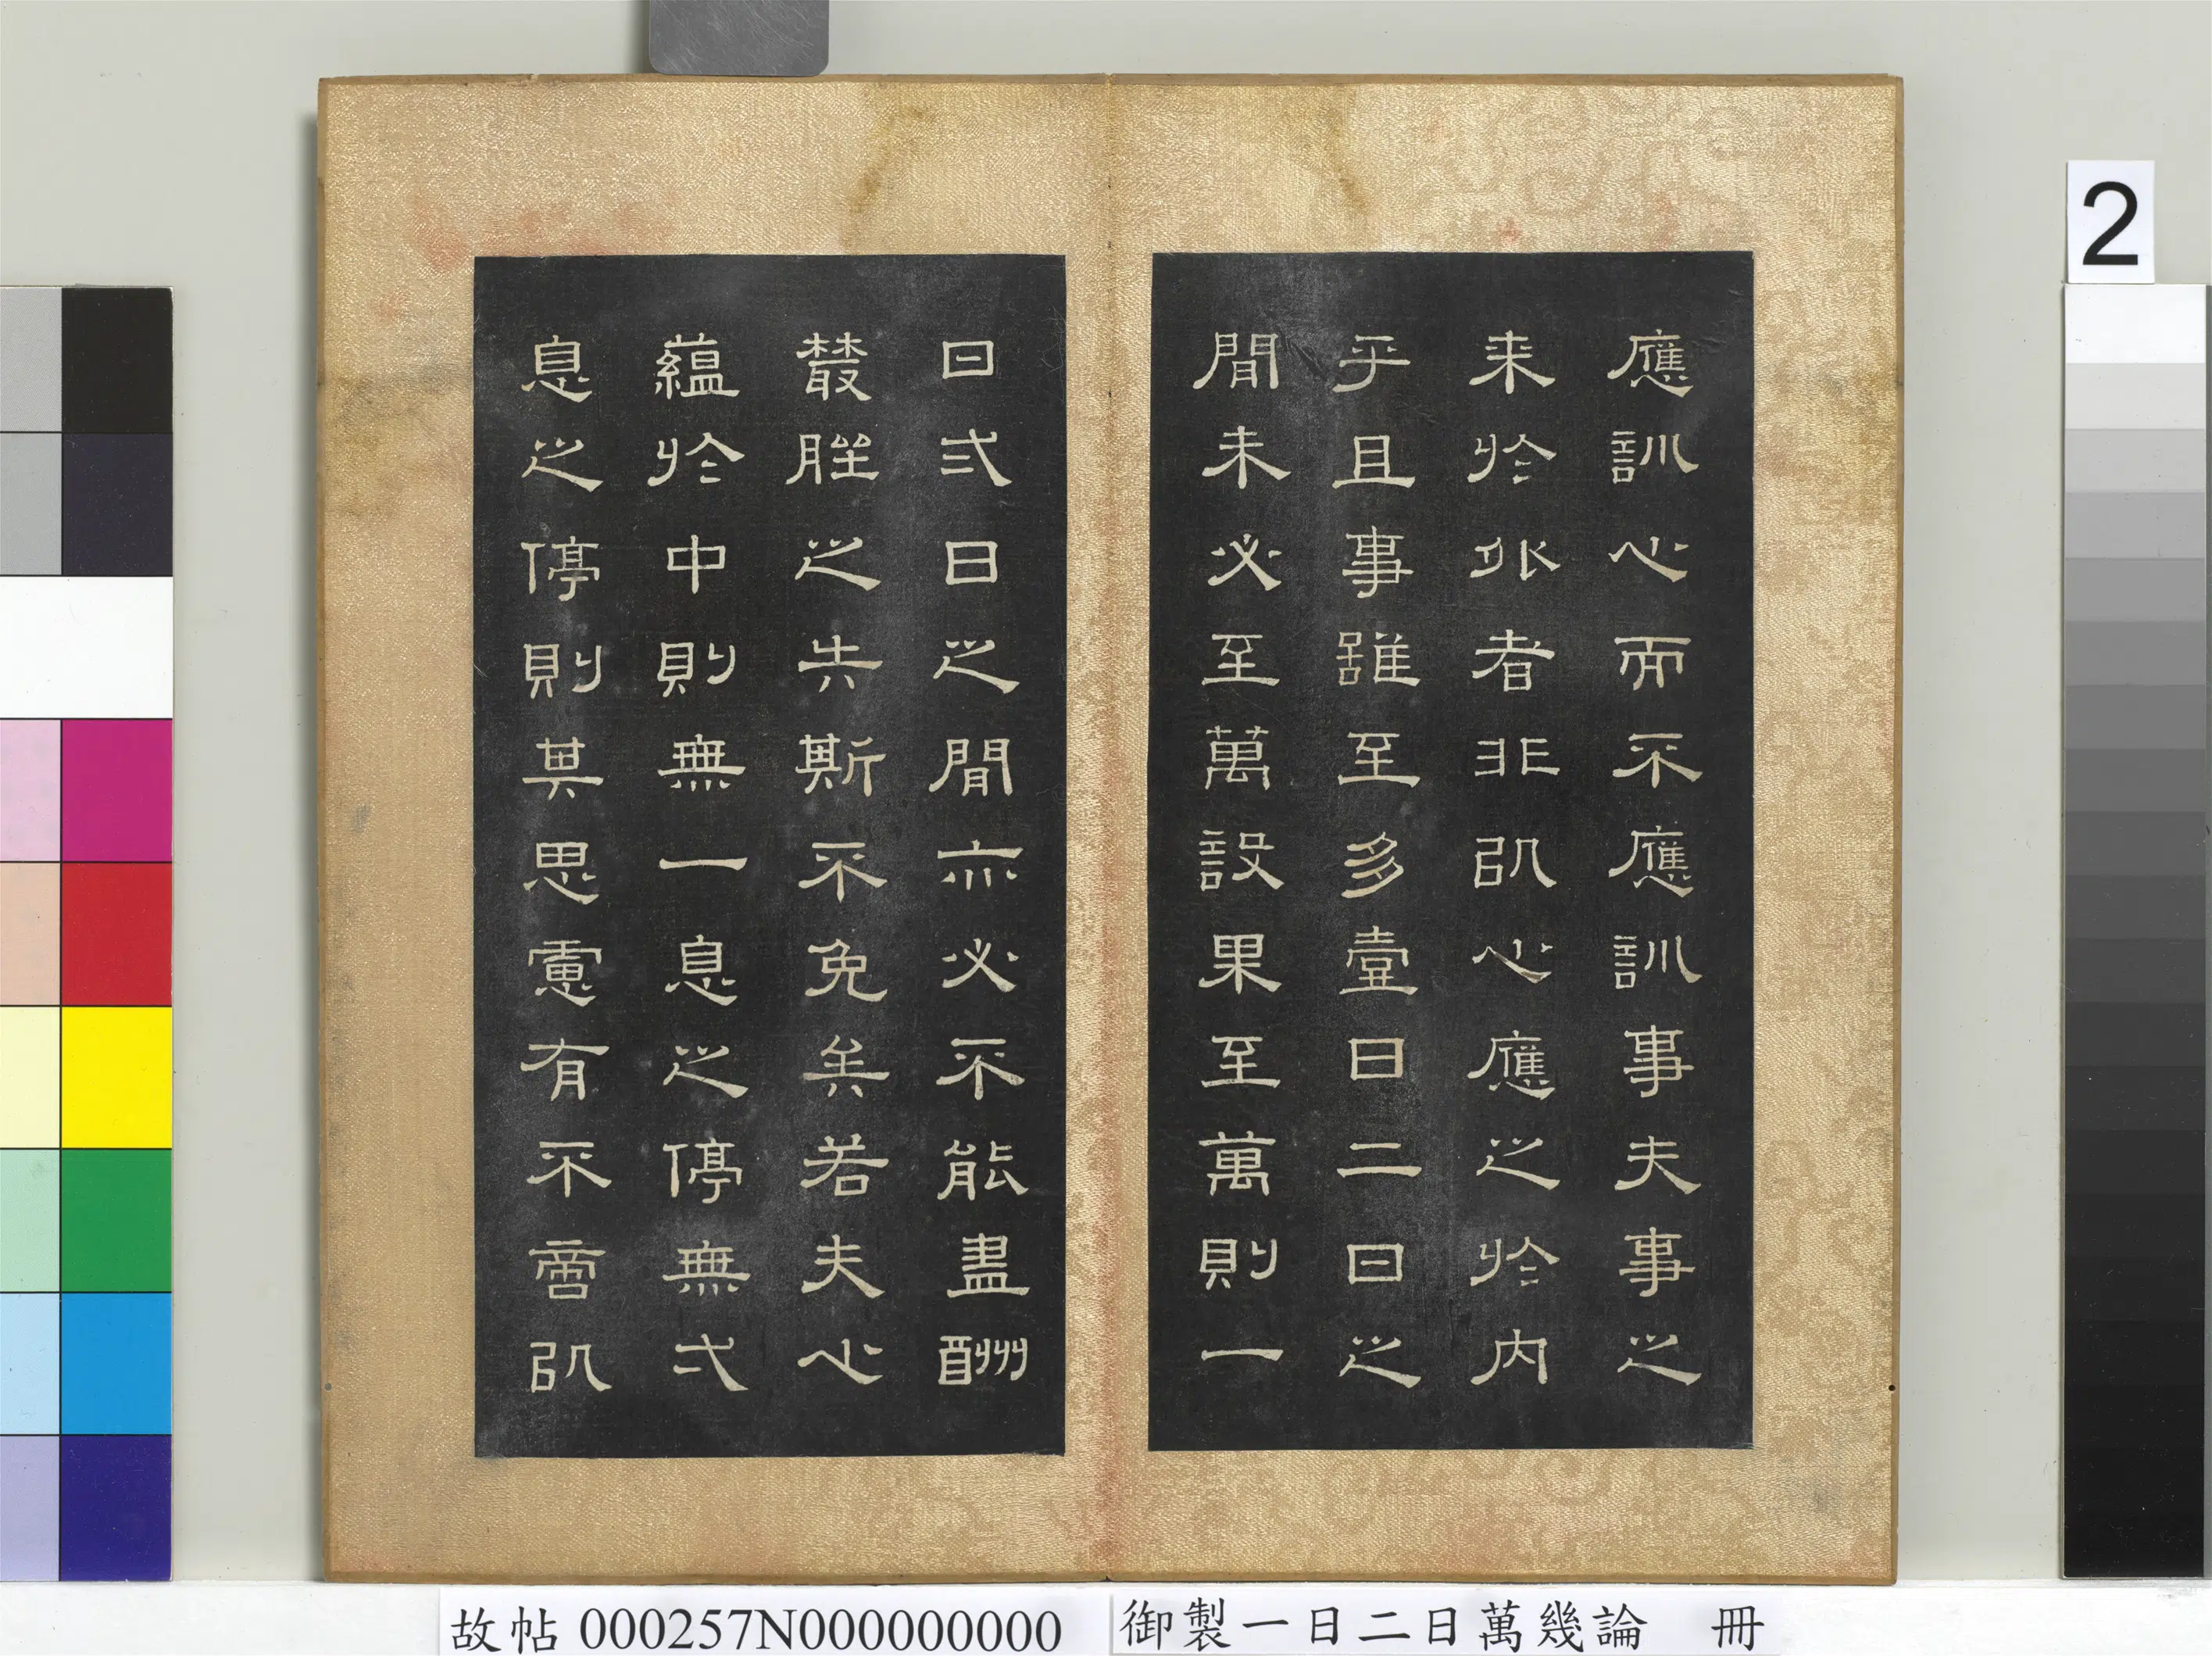 2
應訓心而不應訓事夫事之
来於外者非㕥心應之於内
乎且事雖至多壹日二日之
間未必至萬設果至萬則一
日弍日之間亦必不能盡酬
叢脞之失斯不免矣若夫心
蘊於中則無一息之停無弌
息之停則其思慮有不啻㕥
故帖 000257N000000000
御製一日二日萬幾論 冊